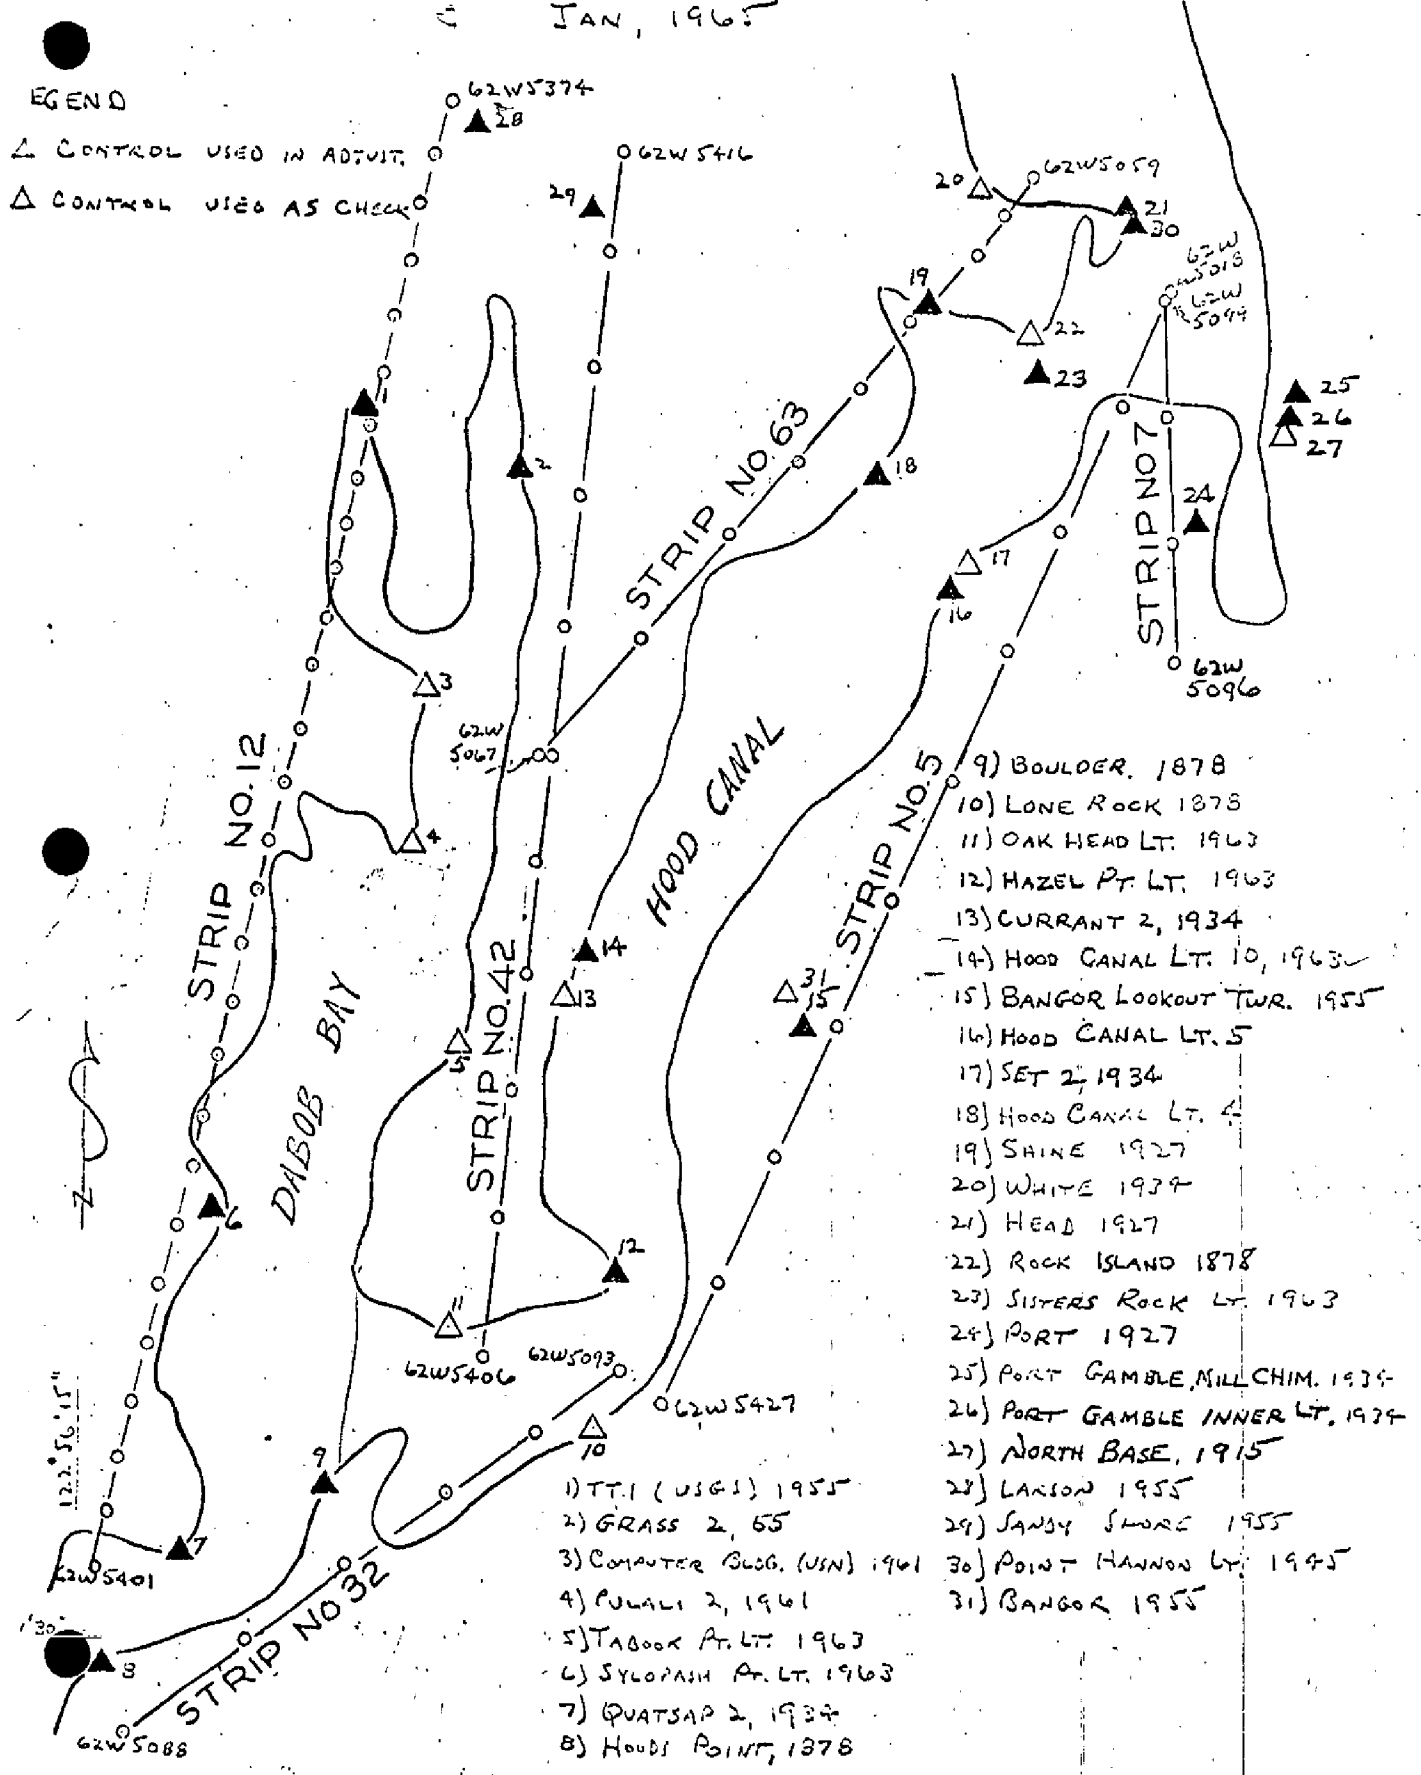 JAN, 1965
EGEND
△ CONTROL USED IN ADJUST.
△ CONTROL USED AS CHECK
62W5374
28
62W 5416
29
62W5059
20
21
30
62W
5018
62W
5099
19
22
23
25
26
27
1
2
18
24
STRIP NO. 63
STRIP NO 7
17
16
3
62W
5096
62W
5067
STRIP NO. 12
HOOD CANAL
STRIP No. 5
4
14
13
31
15
5
STRIP NO. 42
DABOB BAY
N
6
12
11
62W5406
62W5093
62W5427
10
9
122°56'15"
7
62W5401
1'30"
8
STRIP NO 32
62W5088
1) TT.1 (USGS) 1955
2) GRASS 2, 55
3) COMPUTER BLDG. (USN) 1961
4) PULALI 2, 1961
5) TABOOK PT. LT. 1963
6) SYLOPASH PT. LT. 1963
7) QUATSAP 2, 1934
8) HOODS POINT, 1878
9) BOULDER. 1878
10) LONE ROCK 1878
11) OAK HEAD LT. 1963
12) HAZEL PT. LT. 1963
13) CURRANT 2, 1934
14) HOOD CANAL LT. 10, 1963
15) BANGOR LOOKOUT TWR. 1955
16) HOOD CANAL LT. 5
17) SET 2, 1934
18) HOOD CANAL LT. 4
19) SHINE 1927
20) WHITE 1934
21) HEAD 1927
22) ROCK ISLAND 1878
23) SISTERS ROCK LT. 1963
24) PORT 1927
25) PORT GAMBLE, MILL CHIM. 1934
26) PORT GAMBLE INNER LT. 1934
27) NORTH BASE, 1915
28) LARSON 1955
29) SANDY SHORE 1955
30) POINT HANNON LT. 1945
31) BANGOR 1955